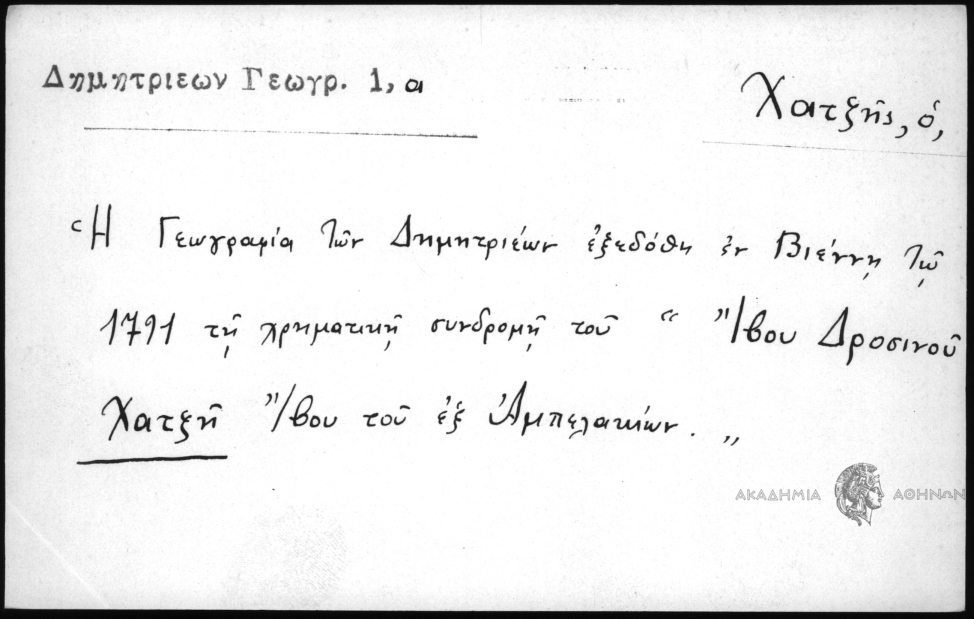 Δημητριεων Γεωγρ. 1, α
Χατζῆς, ὁ,
Ἡ Γεωγραφία τῶν Δημητριέων ἐξεδόθη ἐν Βιέννῃ τῷ
1791 τῇ χρηματικῇ συνδρομῇ τοῦ “ Ἴβου Δροσινοῦ
Χατζῆ Ἴβου τοῦ ἐξ Ἀμπελακίων. „
ΑΚΑΔΗΜΙΑ ΑΘΗΝΩΝ